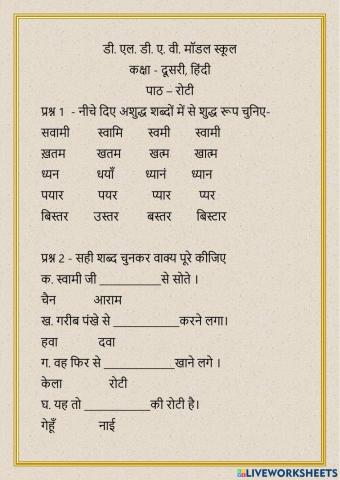 डी. एल. डी. ए. वी. मॉडल स्कूल
कक्षा - दूसरी, हिंदी
पाठ – रोटी
प्रश्न 1 - नीचे दिए अशुद्ध शब्दों में से शुद्ध रूप चुनिए-
सवामी स्वामि स्वमी स्वामी
ख़तम खतम खत्म खात्म
ध्यन धयाँ ध्यानं ध्यान
पयार पयर प्यार प्यर
बिस्तर उस्तर बस्तर बिस्टार
प्रश्न 2 - सही शब्द चुनकर वाक्य पूरे कीजिए
क. स्वामी जी ___________से सोते ।
चैन आराम
ख. गरीब पंखे से ____________करने लगा।
हवा दवा
ग. वह फिर से _____________खाने लगे ।
केला रोटी
घ. यह तो ____________की रोटी है।
गेहूँ नाई
LIVEWORKSHEETS